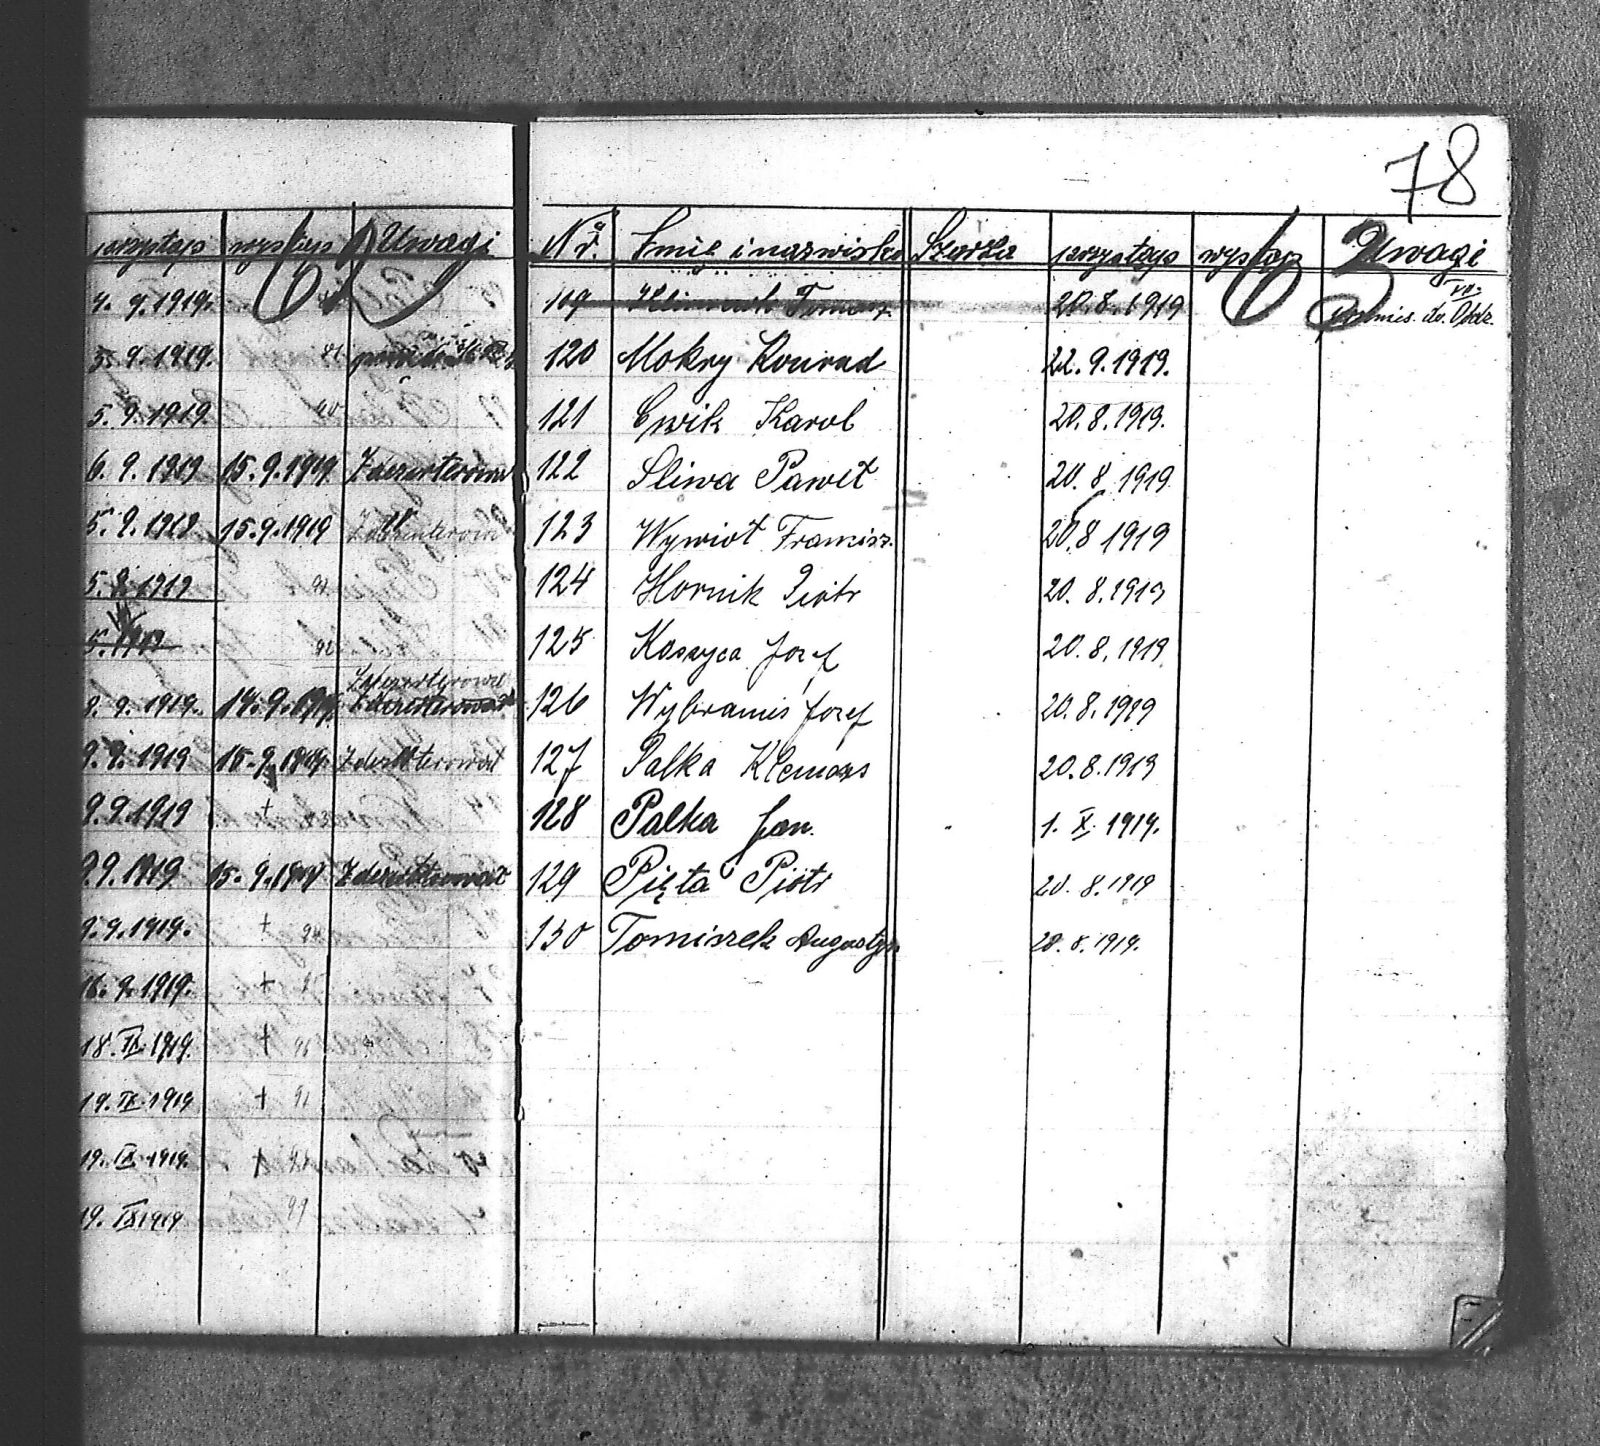 78
przystąp wystąp Uwagi
4. 9. 1919.
5. 9. 1919.
5. 9. 1919.
6. 9. 1919 15. 9. 1919 Zdezerterował
5. 9. 1919 15. 9. 1919 Zdezerterował
5. 9. 1919
5. 1919
Zdezerterował
8. 9. 1919. 14. 9. 1919. Zdezerterował
9. 9. 1919 15. 9. 1919. Zdezerterował
9. 9. 1919 +
9. 9. 1919 15. 9. 1919 Zdezerterował
9. 9. 1919. +
16. 9. 1919. +
18. IX. 1919. +
19. IX. 1919 +
19. IX. 1919. +
19. IX 1919
Nr. Imię i nazwisko Szarża przystąp wystąp Uwagi
119 Tomasz 20. 8. 1919 Przenies. do Oddz.
120 Mokry Konrad 22. 9. 1919.
121 Cwik Karol 20. 8. 1919.
122 Sliwa Paweł 20. 8. 1919
123 Wywioł Francisz. 20. 8 1919
124 Hornik Piotr 20. 8. 1919
125 Kaszyca Jozef 20. 8. 1919
126 Wybraniec Jozef 20. 8. 1919
127 Palka Klemens 20. 8. 1919
128 Palka Jan. 1. X. 1919.
129 Pięta Piotr 20. 8. 1919
130 Tomiszek Augustyn 20. 8. 1919.